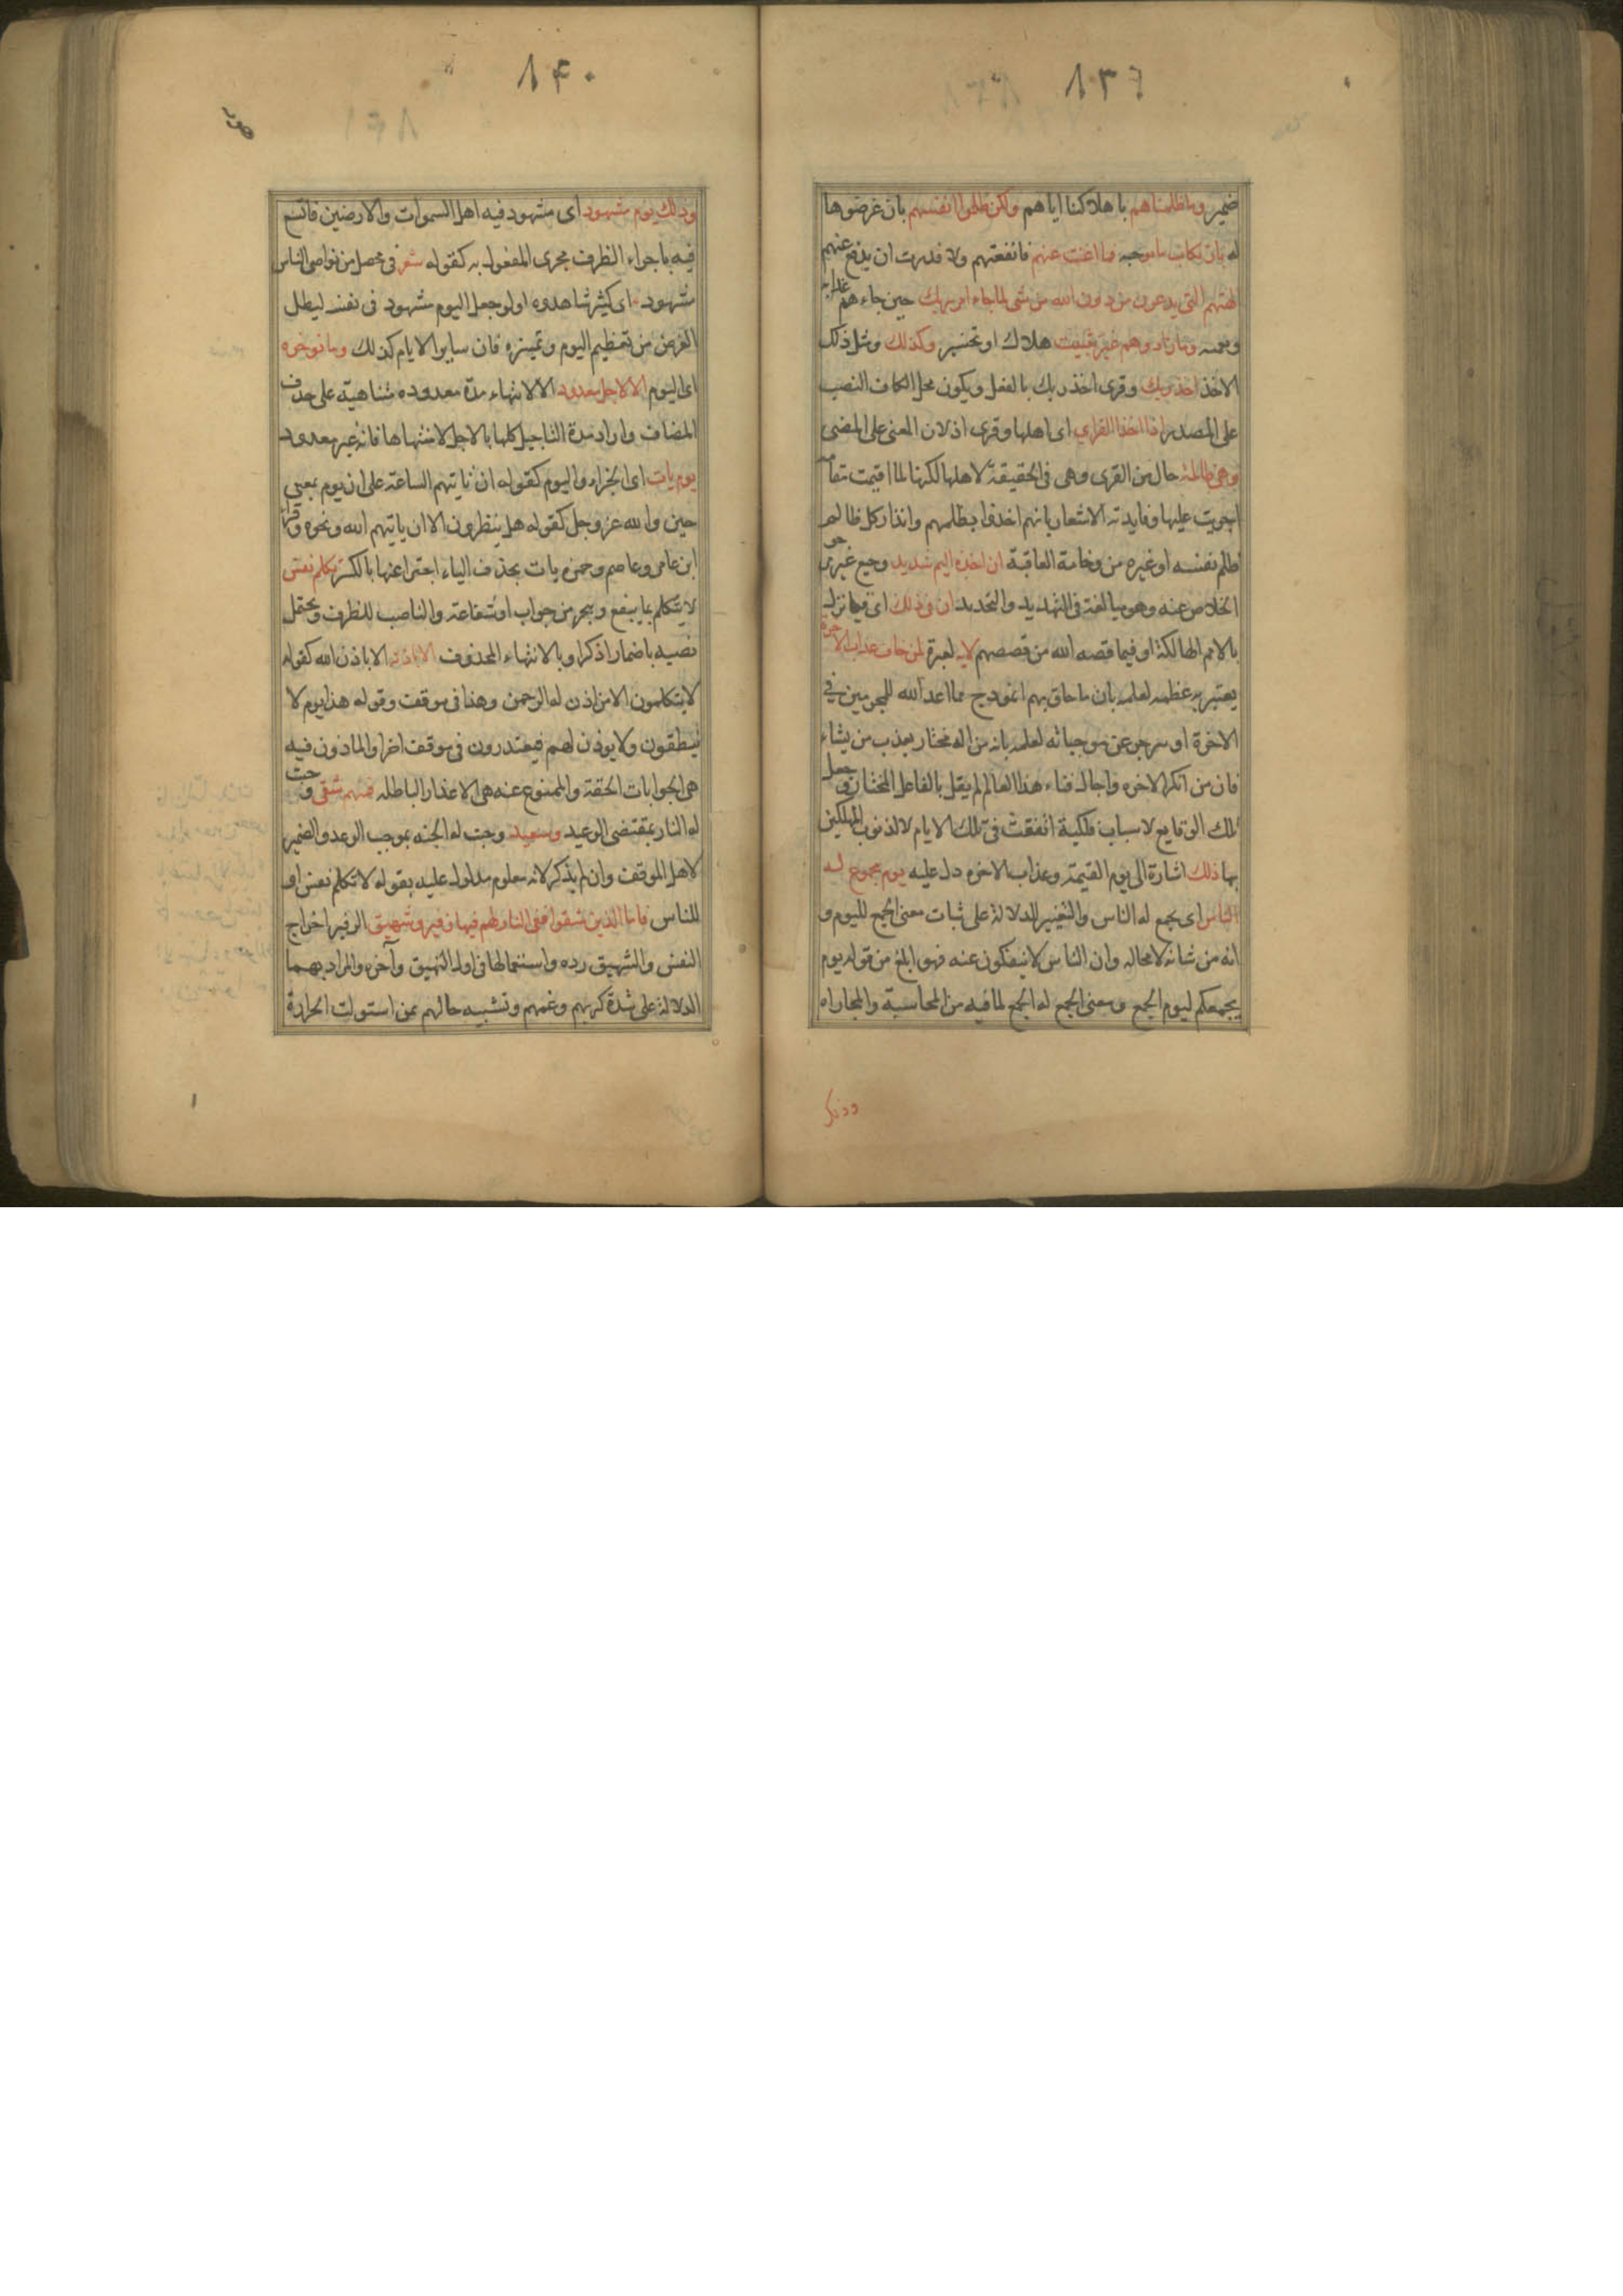 ١٣٩
ضمير وما ظلمناهم باهلاكنا اياهم ولكن ظلموا انفسهم بان عرضوها
له بارتكاب ما يوجبه فما اغنت عنهم فما نفعتهم ولا قدرت ان يدفع عنهم
الهتهم التي يدعون من دون الله من شى لما جاء امر ربك حين جاءهم عذابه
ونقمته وما زادوهم غير تتبيت هلاك او تخسير وكذلك ومثل ذلك
الاخذ اخذ ربك وقرى اخذ ربك بالفعل ويكون محل الكاف النصب
على المصدر اذا اخذ القرى اى اهلها وقرى اذ لان المعنى على المضى
وهى ظالمة حال من القرى وهى فى الحقيقة لاهلها لكنها لما اقيمت مقامه
اجريت عليها وفايدته الاشعار بانهم اخذوا بظلمهم وانذار كل ظالم
ظلم نفسه او غيره من وخامة العاقبة ان اخذه اليم شديد وجيع غير مرجو
الخلاص عنه وهو مبالغة فى التهديد والتحديد ان فى ذلك اى فيما نزل
بالامم الهالكة او فيما قصه الله من قصصهم لاية لعبرة لمن خاف عذاب الاخرة
يعتبر به عظمه لعلمه بان ما حاق بهم انموذج مما اعد الله للمجرمين فى
الاخرة او ينزجر عن موجباته لعلمه بانه من اله مختار يعذب من يشاء
فان من انكر الاخره واحال فناء هذا العالم لم يقل بالفاعل المختار وجعل
تلك الوقايع لاسباب فلكية اتفقت فى تلك الايام لا لذنوب المهلكين
بها ذلك اشارة الى يوم القيمة وعذاب الاخره دل عليه يوم مجموع له
الناس اى يجمع له الناس والتغيير للدلالة على ثبات معنى الجمع لليوم و
انه من شانه لا محاله وان الناس لا ينفكون عنه فهو ابلغ من قوله يوم
يجمعكم ليوم الجمع ومعنى الجمع له الجمع لما فيه من المحاسبة والمجازاه
وذلك
١٤٠
وذلك يوم مشهود اى مشهود فيه اهل السموات والارضين فاتسع
فيه باجراء الظرف مجرى المفعول به كقوله شعر فى محفل من نواصى الناس
مشهود اى كثير شاهدوه ولو جعل اليوم مشهود فى نفسه ليطل
الغرض من تعظيم اليوم وتميزه فان ساير الايام كذلك وما نوخره
اى اليوم الا لاجل معدود الا لانتهاء مدة معدوده متناهية على حذف
المضاف واراد مدة التاجيل كلها بالاجل لا منتهاها فانه غير معدود
يوم يات اى الجزاء واليوم كقوله ان تاتيهم الساعة على ان يوم بمعنى
حين والله عز وجل كقوله هل ينظرون الا ان ياتيهم الله ونحوه وقرا
ابن عامر وعاصم وحمزه يات بحذف الياء اجتزاء عنها بالكسرة لا تكلم نفس
لا يتكلم بما ينفع وينجى من جواب او شفاعة والناصب للظرف ويحتمل
نصبه باضمار اذكر او بالانتهاء المحذوف الا باذنه الا باذن الله كقوله
لا يتكلمون الا من اذن له الرحمن وهذا فى موقف وقوله هذا يوم لا
ينطقون ولا يوذن لهم فيعتذرون فى موقف اخر او الماذون فيه
هى الجوابات الحقة والممنوع عنه هى الاعذار الباطله فمنهم شقى وجبت
له النار بمقتضى الوعيد وسعيد وجبت له الجنه بموجب الوعد والضمير
لاهل الموقف وان لم يذكر لانه معلوم مدلول عليه بقوله لا تكلم نفس او
للناس فاما الذين شقوا ففى النار لهم فيها زفير وشهيق الزفير اخراج
النفس والشهيق رده واستعمالها فى اول النهيق وآخره والمراد بهما
الدلالة على شدة كربهم وغمهم وتشبيه حالهم بمن استولت الحرارة